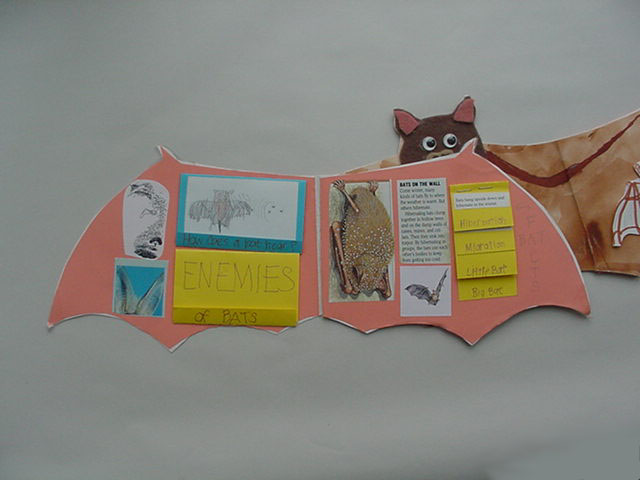 How Does a bat hear?
ENEMIES
of BATS
BATS ON THE WALL
Come winter, many
kinds of bats fly to where
the weather is warm. But
others hibernate.
Hibernating bats clump
together in hollow trees
and on the
of caves, mines, and
Their
major. By hibernating in
groups, the bats can
other's bodies to keep
from getting too cold.
Bats hang upside down and
hibernate in the winter.
Hibernation
Migration
Little Bat
Big Bat
BAT
FACTS